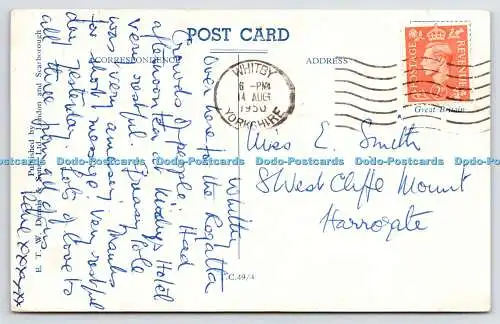 POST CARD
CORRESPONDENCE
ADDRESS
Whitby
Over here for the Regatta
Crowds of people. Had
afternoon tea at Kirby's Hotel
very restful. Greasy Pole
was very amusing. Thanks
for short message very restful
day yesterday. Lots of love to
all three from all of us
Rene xxxxxx
Published by
E. T. W. Dennis & Sons Ltd., London and Scarborough
C.49/4
WHITBY
6 - PM
14 AUG
1950
YORKSHIRE
POSTAGE
REVENUE
Great Britain
Miss E. Smith
8 West Cliffe Mount
Harrogate
Dodo-Postcards Dodo-Postcards Dodo-Postcards Dodo-Postcards Dodo-Postcards Dodo-Postcards